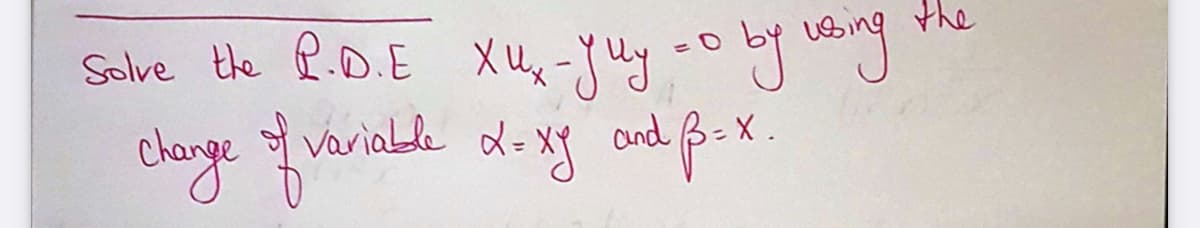 Solve the P.D.E xuₓ - yu_y = 0 by using the
change of variable α = xy and β = x.